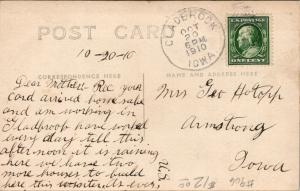 POST CARD
10-20-10
GLADBROOK
OCT
20
6PM
1910
IOWA
ONE CENT
CORRESPONDENCE HERE
NAME AND ADDRESS HERE
Dear Rec your
Card arrived home safe
and am working in
Gladbrook have worked
every day till this
afternoon it is raining
here we have two
more houses to build
here this
Mrs Geo Hotopp
Armstrong
Iowa